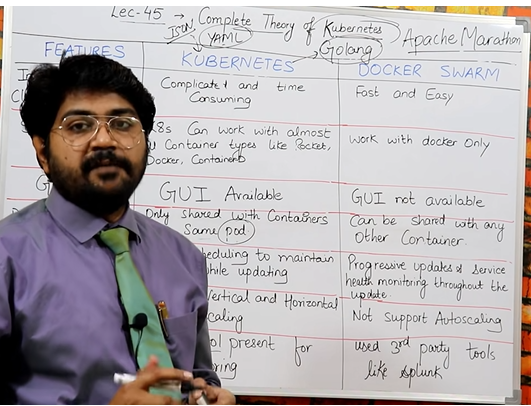 Lec-45 → Complete Theory of Kubernetes
JSON YAML Golang Apache Marathon
FEATURES KUBERNETES DOCKER SWARM
Complicated and time Consuming
Fast and Easy
K8s Can Work with almost
Container types like Rocket,
Docker, ContainerD
Work with docker Only
GUI Available
GUI not available
Only shared with Containers
Same pod
Can be shared with any
Other Container.
to maintain
while updating
Progressive updates & service
health monitoring throughout the
update
Vertical and Horizontal
Scaling
Not Support Autoscaling
present for
used 3rd party tools
like Splunk